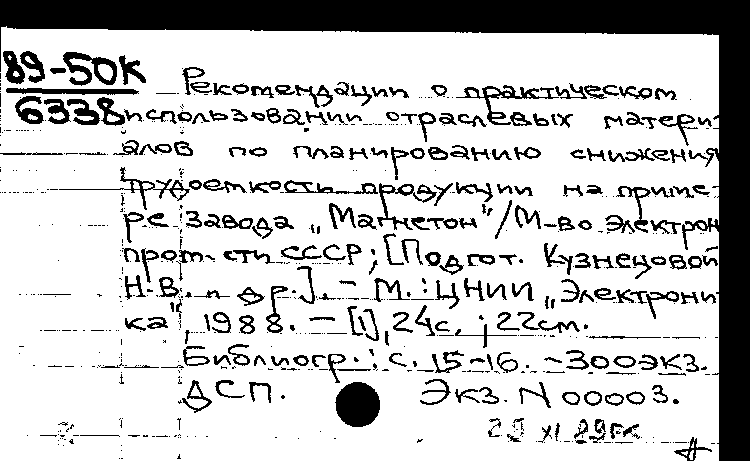 89-50К
6338
Рекомендации о практическом
использовании отраслевых матери-
алов по планированию снижения
трудоемкости продукции на приме-
ре завода „Магнетон"/М-во электрон
пром-сти СССР; [Подгот. Кузнецовой
Н.В. и др.]. - М.: ЦНИИ „Электрони-
ка", 1988. — [1], 24с. ; 22см.
Библиогр.: с. 15-16. ~ 300экз.
ДСП. Экз. N 00003.
29 XI 89